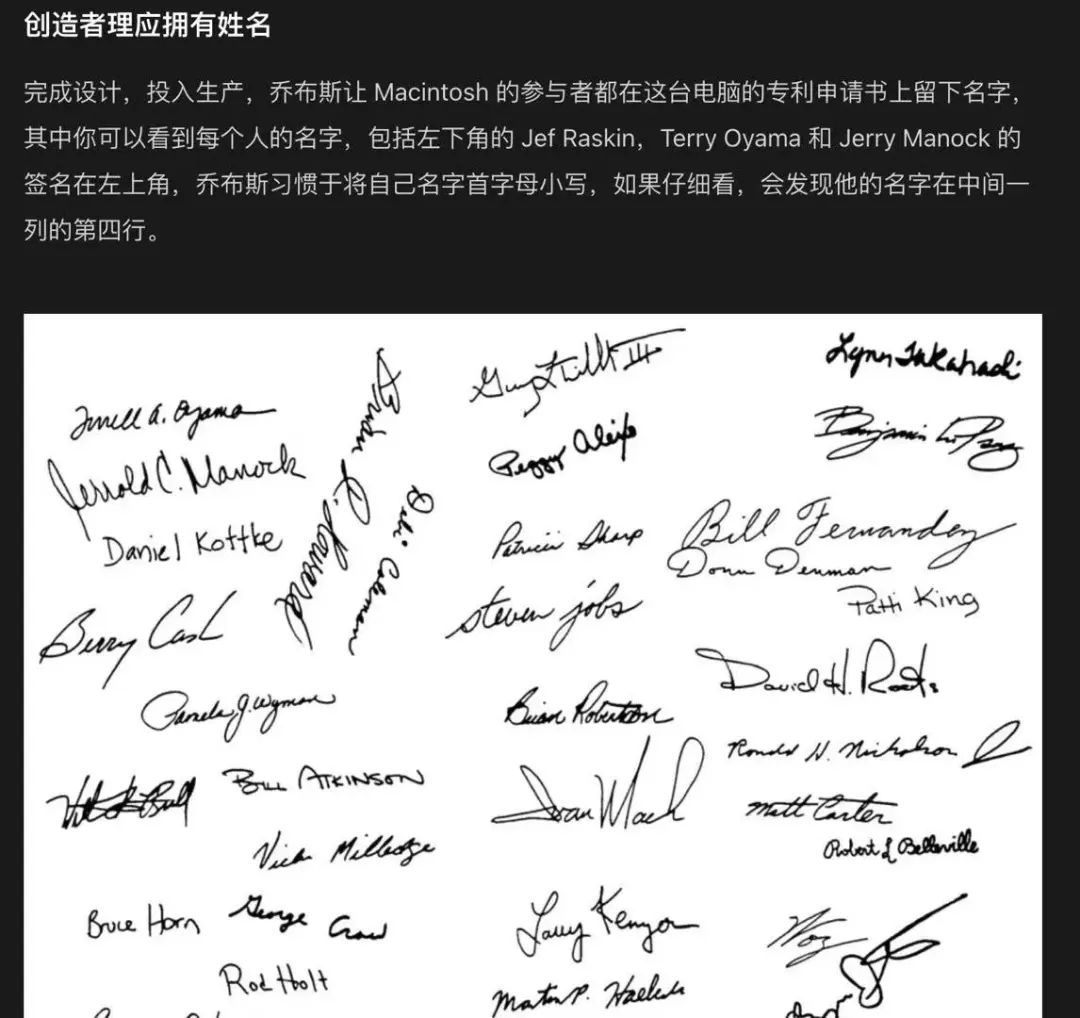 创造者理应拥有姓名
完成设计，投入生产，乔布斯让 Macintosh 的参与者都在这台电脑的专利申请书上留下名字，
其中你可以看到每个人的名字，包括左下角的 Jef Raskin，Terry Oyama 和 Jerry Manock 的
签名在左上角，乔布斯习惯于将自己名字首字母小写，如果仔细看，会发现他的名字在中间一
列的第四行。
Terrell A. Oyama
Jerrold C. Manock
Daniel Kottke
Berry Cash
Pamela G. Wyman
Bill Atkinson
Bruce Horn
George Crow
Rod Holt
Brian R. Howard
Debi Coleman
Peggy Alexio
Patricia Sharp
steven jobs
Brian Robertson
Larry Kenyon
Martin P. Haeberli
Lynn Takahashi
Benjamin
Bill Fernandez
Donn Denman
Patti King
David H. Roots
Ronald H. Nicholson
Matt Carter
Robert L Belleville
Woz